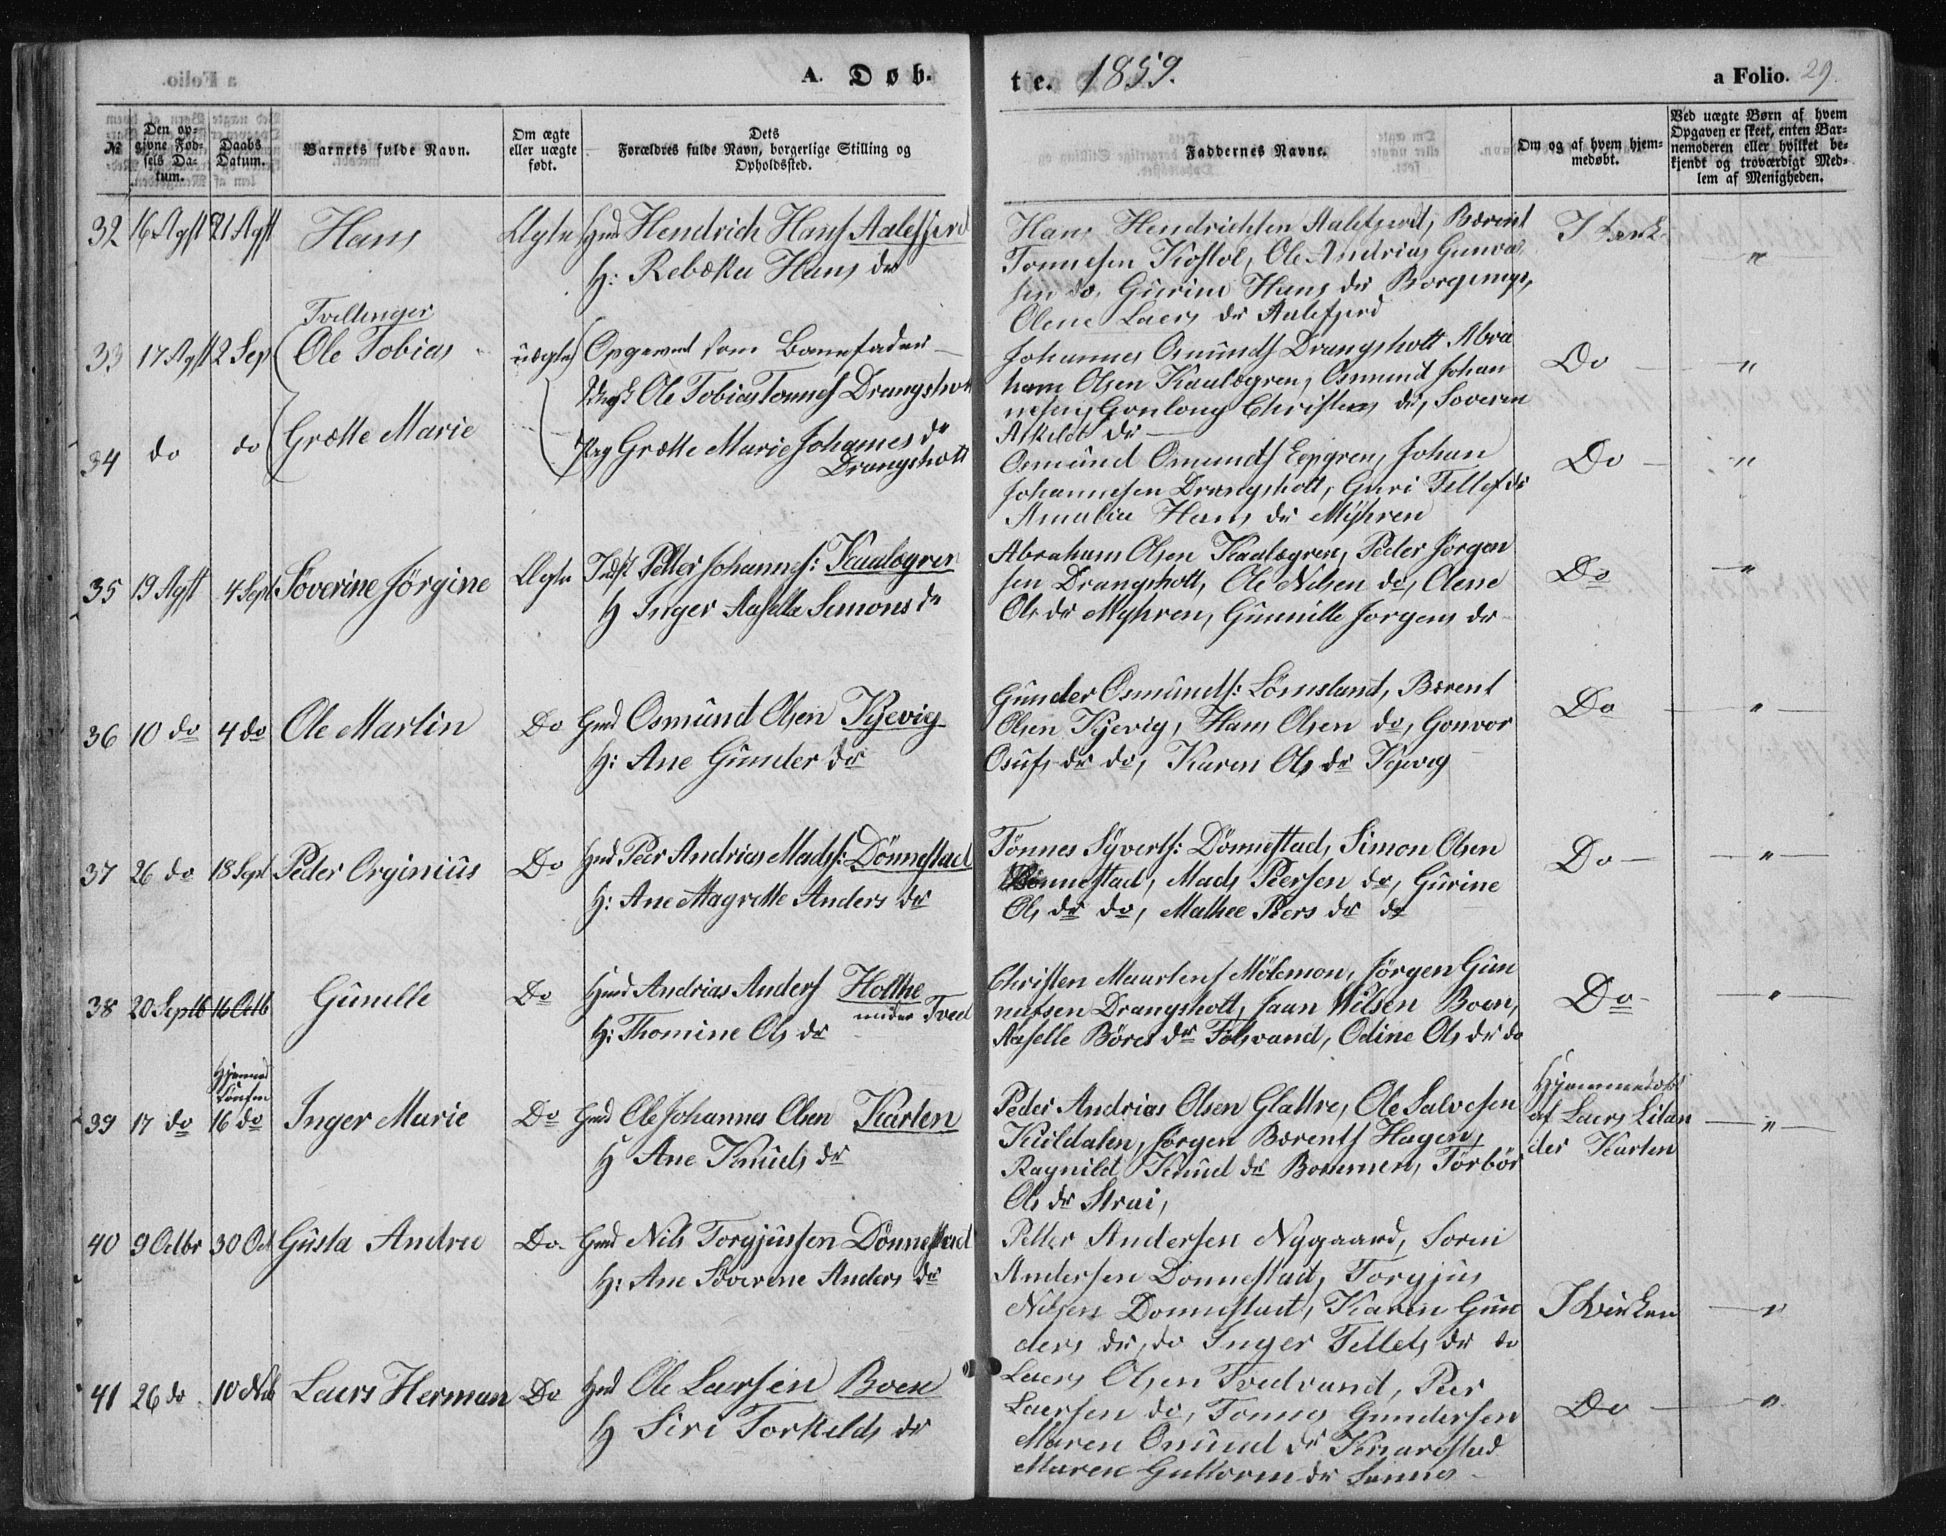 A. Døb-
te. 1859.
a Folio. 29.
№
Den opgivne Fødsels Datum.
Daabs Datum.
Barnets fulde Navn.
Om ægte eller uægte født.
Dets Forældres fulde Navn, borgerlige Stilling og Opholdssted.
Faddernes Navne.
Om og af hvem hjemmedøbt.
Ved uægte Børn af hvem Opgaven er skeet, enten Barnemoderen eller hvilket bekjendt og troværdigt Medlem af Menigheden.
32 16 Agst 21 Agst Hans Ægte Gmd Hendrich Hans Aalefjerd
H: Rebæka Hans dr
Hans Hendrichsen Aalefjerd, Bærent
Tønnesen Kostøl, Ole Andrias Gunval
sen do, Gurine Hans dr
Olene Laers dr Aalefjerd
"
Tvillinger
33 17 Agst 2 Sep Ole Tobias uægte Opgivet som Barnefader
Ole Tobias Tønnes Drangsholt
Johannes Osmunds Drangsholt Abra
ham Olsen Kaulægren, Osmund Johan
nesen, Gonlong Christens dr, Soveren
Askeld dr
Do "
34 do do Grætte Marie
Pig Grætte Marie Johannes dr
Drangsholt
Osmund Osmunds Eepgren, Johan
Johannesen Drangsholt, Guri Tellefs dr
Amalia Hans dr Myhren
Do "
35 19 Agst 4 Sept Søverine Jørgine Ægte Indst Petter Johannes: Kaulægren
H Inger Aaselle Simons dr
Abraham Olsen Kaulægren, Peder Jørgen
sen Drangsholt, Ole Nilsen do, Olene
Ols dr Myhren, Gunnille Jørgens dr
Do "
36 10 do 4 do Ole Martin Do Gmd Osmund Olsen Kjevig
H: Ane Gunder dr
Gunder Osmunds: Lømsland, Bærent
Olsen Kjevig, Hans Olsen do, Gonvor
Osufs dr do, Karen Ols dr Kjevig
Do "
37 26 do 18 Sept Peder Orginius Do Gmd Peer Andrias Mads: Dønnestad
H: Ane Magrette Anders dr
Tønnes Syverts: Dønnestad, Simon Olsen
Dønnestad, Mads Peersen do, Gurine
Ols dr do, Mathee Peers dr do
Do "
38 20 Septb 16 Octb Gunelle Do Hmd Andrias Anders Holthe
under Tved
H: Thomine Ols dr
Christen Maartens Mølemon, Jørgen Gun
nufsen Drangsholt, Jaan Nilsen Boen,
Aaselle Børes dr Følsvand, Odine Ols dr do
Do "
39 17 do 16 do Inger Marie Do Gmd Ole Johannes Olsen Karten
H Ane Knuds dr
Peder Andrias Olsen Glattre, Ole Salvesen
Kuldalen, Jørgen Bærents Hagen,
Ragnild Knud dr Bommen, Torbør
Ols dr Strai,
Hjemmedøbt
af Laers Lilan
der Karten
"
40 9 Octbr 30 Oct Gusta Andree Do Gmd Nils Torgjussen Dønnestad
H: Ane Søverine Anders dr
Petter Andersen Nygaard, Soren
Andersen Dønnestad, Torgjus
Nilsen Donnestad, Karen Gun
ders dr, do Inger Tellefs dr do
I Kirken "
41 26 do 10 Laers Herman Do Hmd Ole Laersen Boen
H Siri Torkelds dr
Laers Olsen Tvedvand, Peer
Laersen do, Tonnes Gundersen
Maren Osmund dr Knarestad
Maren Guttorm dr
Do "